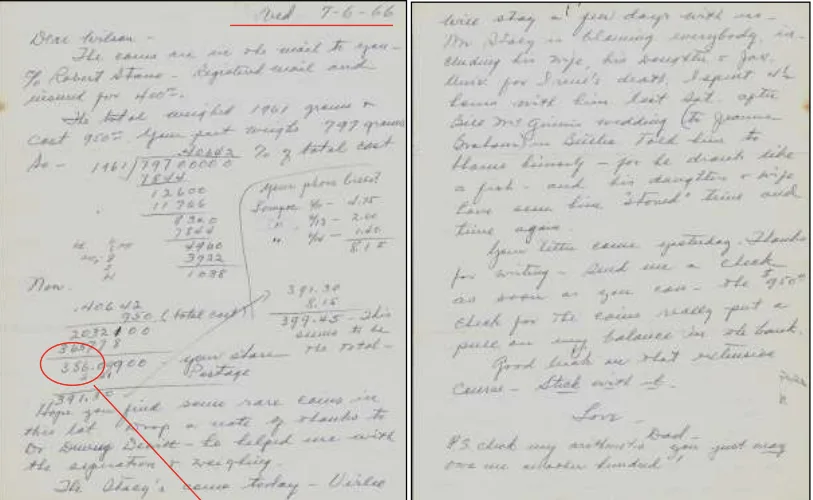 Wed 7-6-66
Dear Wilson -
The coins are in the mail to you -
c/o Robert Stone - Registered mail and
insured for 400⁰⁰.
The total weighed 1961 grams &
cost 950⁰⁰. Your part weighs 797 grams
.40642 % of total cost
So - 1961)797.00000
7844
12600
11766
8340
7844
4960
3922
1038
Your phone bill?
4.75
2.00
1.40
8.15
Now.
.40642
950 (total cost)
2032100
365778
386.09900 - your share
Postage
391.30
391.30
8.15
399.45 - This
seems to be
the total -
Hope you find some rare coins in
this lot. Drop a note of thanks to
Dr - he helped me with
the separation & weighing.
The Stacy's came today -
will stay a few days with us.
Mr Stacy is blaming everybody, in-
cluding his wife, his daughter &
for death. I spent 4½
hours with him last Sat. after
Bill McGinnis wedding (to Jeanne
Graham) in Told him to
blame himself - for he drank like
a fish - and his daughter & wife
have seen him "stoned" time and
time again.
Your letter came yesterday. Thanks
for writing - Send me a check
as soon as you can - the $950⁰⁰
check for the coins really put a
on my balance in the bank.
Good luck on that extensive
course - Stick with it.
Love -
Dad -
P.S. check my arithmetic you just may
owe me another hundred!